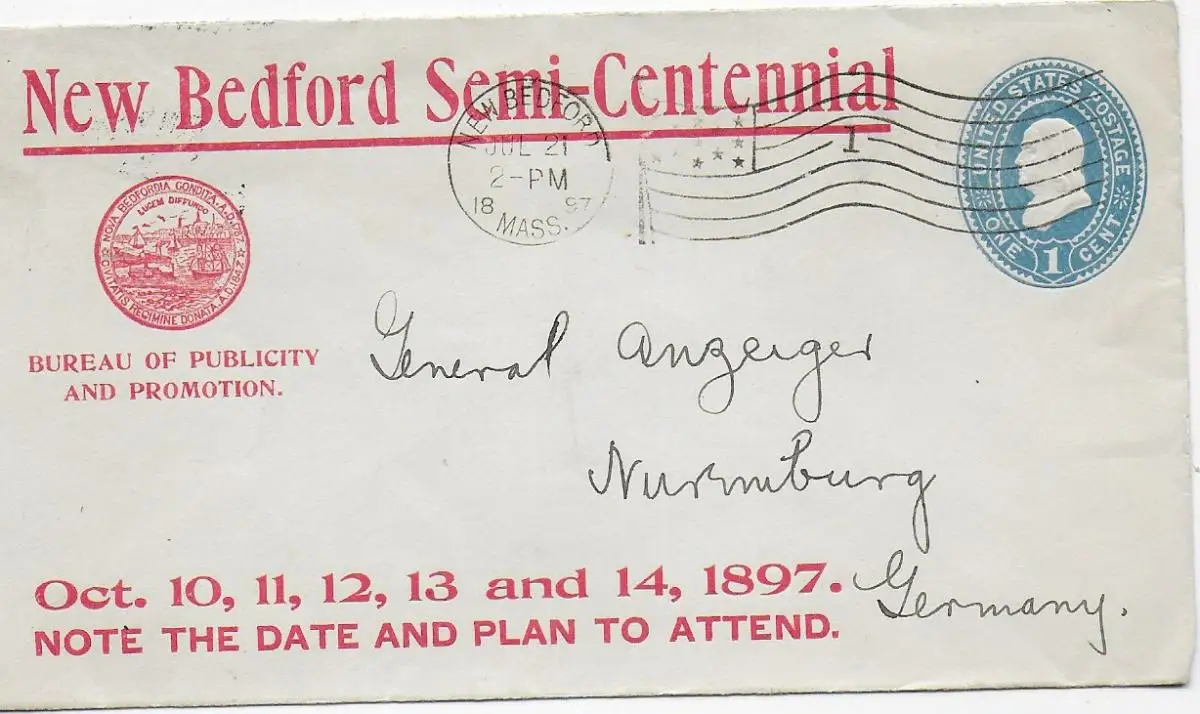 New Bedford Semi-Centennial
NEW BEDFORD
JUL 21
2-PM
18 97
MASS.
1
UNITED STATES POSTAGE
ONE 1 CENT
NOVA BEDFORDIA CONDITA. A.D. 1787.
LUCEM DIFFUNDO
CIVITATIS REGIMINE DONATA. A.D. 1847.
BUREAU OF PUBLICITY
AND PROMOTION.
General Anzeiger
Nuremburg
Germany.
Oct. 10, 11, 12, 13 and 14, 1897.
NOTE THE DATE AND PLAN TO ATTEND.